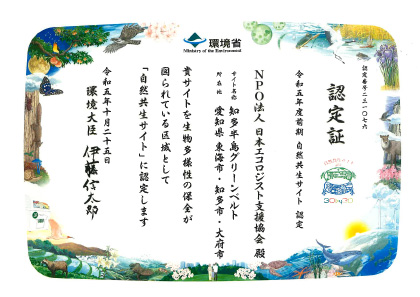 環境省
Ministry of the Environment
認定番号二三一〇七六
認定証
令和五年度前期 自然共生サイト 認定
自然共生サイト
30by30
NPO法人 日本エコロジスト支援協会 殿
サイト名称 知多半島グリーンベルト
所在地 愛知県 東海市・知多市・大府市
貴サイトを生物多様性の保全が
図られている区域として
「自然共生サイト」に認定します
令和五年十月二十五日
環境大臣 伊藤信太郎